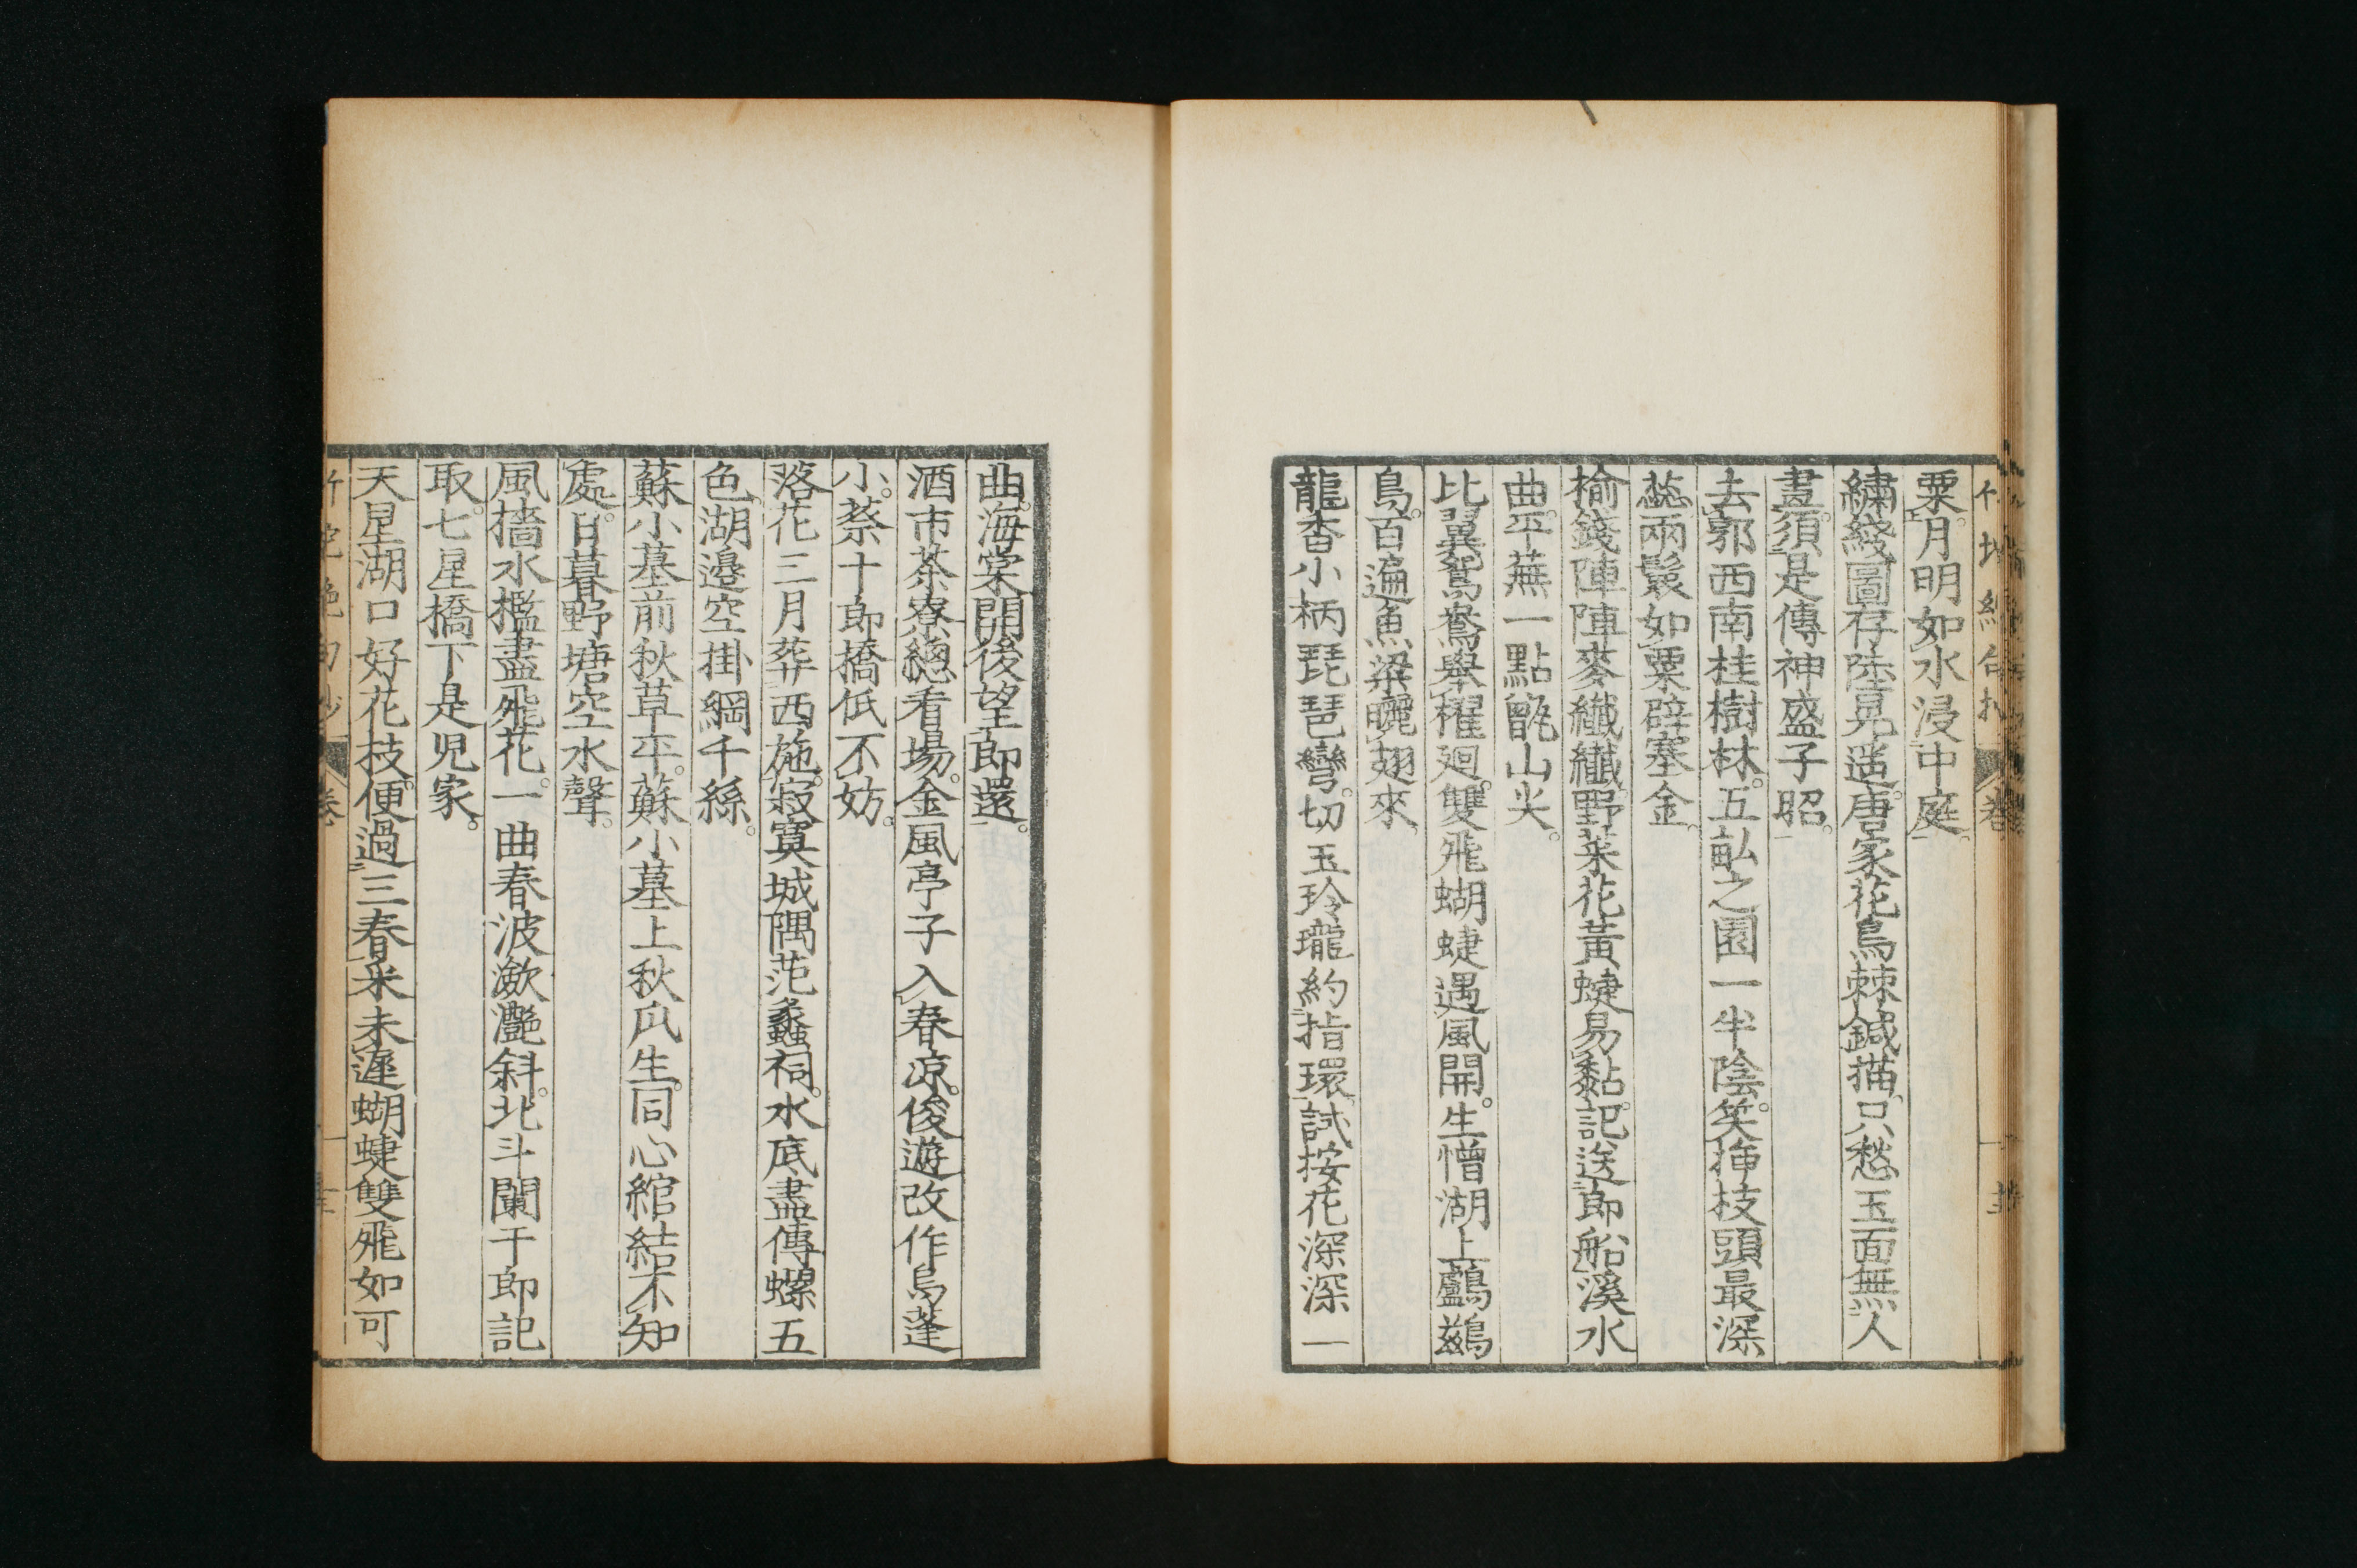 粟。月明如水浸中庭。
繡綫圖存陸晃遥。唐家花鳥棘鍼描。只愁玉面無人
畫。須是傳神盛子昭。
去郭西南桂樹林。五畝之園一半陰。笑揷枝頭最深
蕊。兩鬟如粟辟塞金。
榆錢陣陣麥纖纖。野菜花黃蜨易黏。記送郎船溪水
曲。平蕪一點甑山尖。
比翼鴛鴦舉櫂廻。雙飛蝴蜨遇風開。生憎湖上鸕鷀
鳥。百遍魚梁曬翅來。
龍香小柄琵琶彎。切玉玲瓏約指環。試按花深深一
曲。海棠開後望郎還。
酒市茶寮總看場。金風亭子入春凉。俊遊改作烏蓬
小。蔡十郎橋低不妨。
落花三月葬西施。寂寞城隅范蠡祠。水底盡傳螺五
色。湖邉空掛網千絲。
蘇小墓前秋草平。蘇小墓上秋瓜生。同心綰結不知
處。日暮野塘空水聲。
風檣水檻盡飛花。一曲春波瀲灧斜。北斗闌干郎記
取。七星橋下是兒家。
天星湖口好花枝。便過三春采未遲。蝴蜨雙飛如可